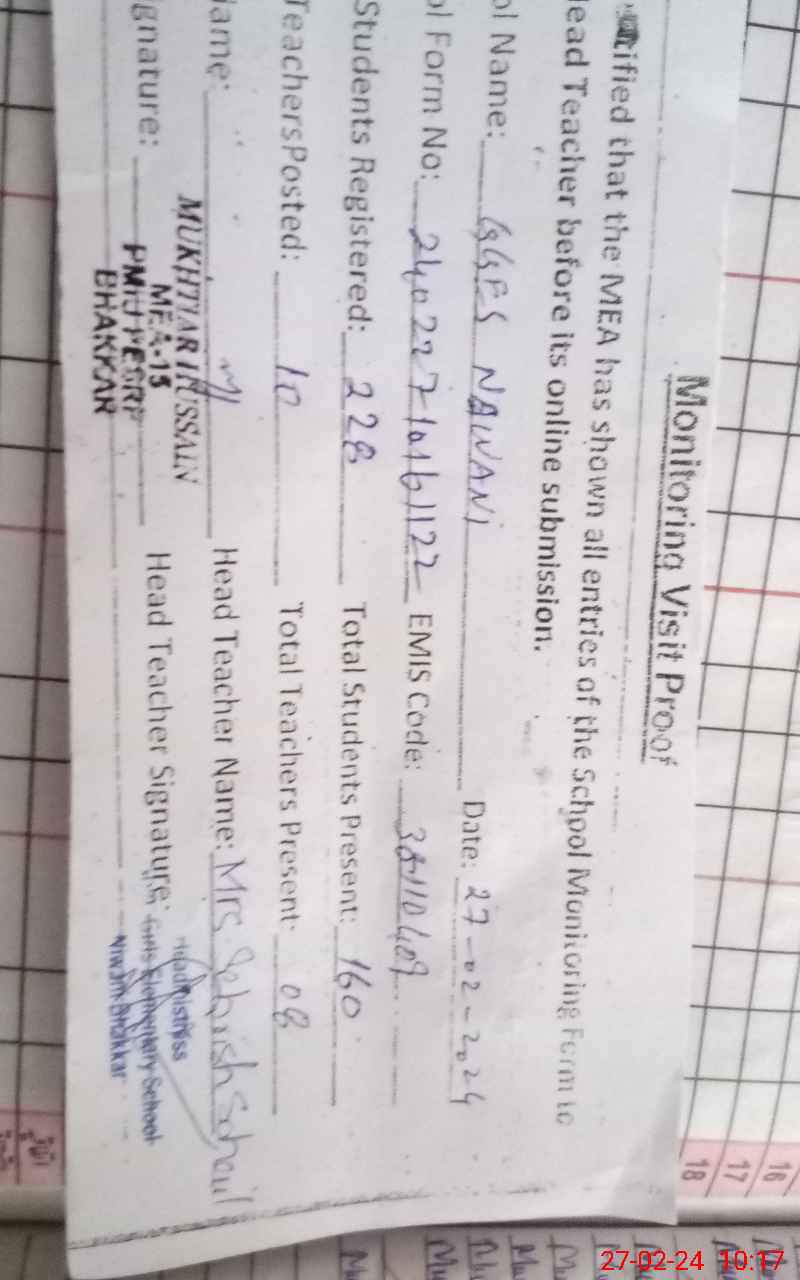 Monitoring Visit Proof
tified that the MEA has shown all entries of the School Monitoring Form to
ead Teacher before its online submission.
ol Name: GGES NAWANI Date: 27-02-2024
ol Form No: EMIS Code: 38110409
Students Registered: 228 Total Students Present: 160
TeachersPosted: 10 Total Teachers Present: 08
ame: Head Teacher Name: Mrs.
gnature: Head Teacher Signature:
MUKHTIAR HUSSAIN
MEA-15
PMIU PESRP
BHAKKAR
Headmistress
Girls Elementary School
Bhakkar
16
17
18
27-02-24 10:17